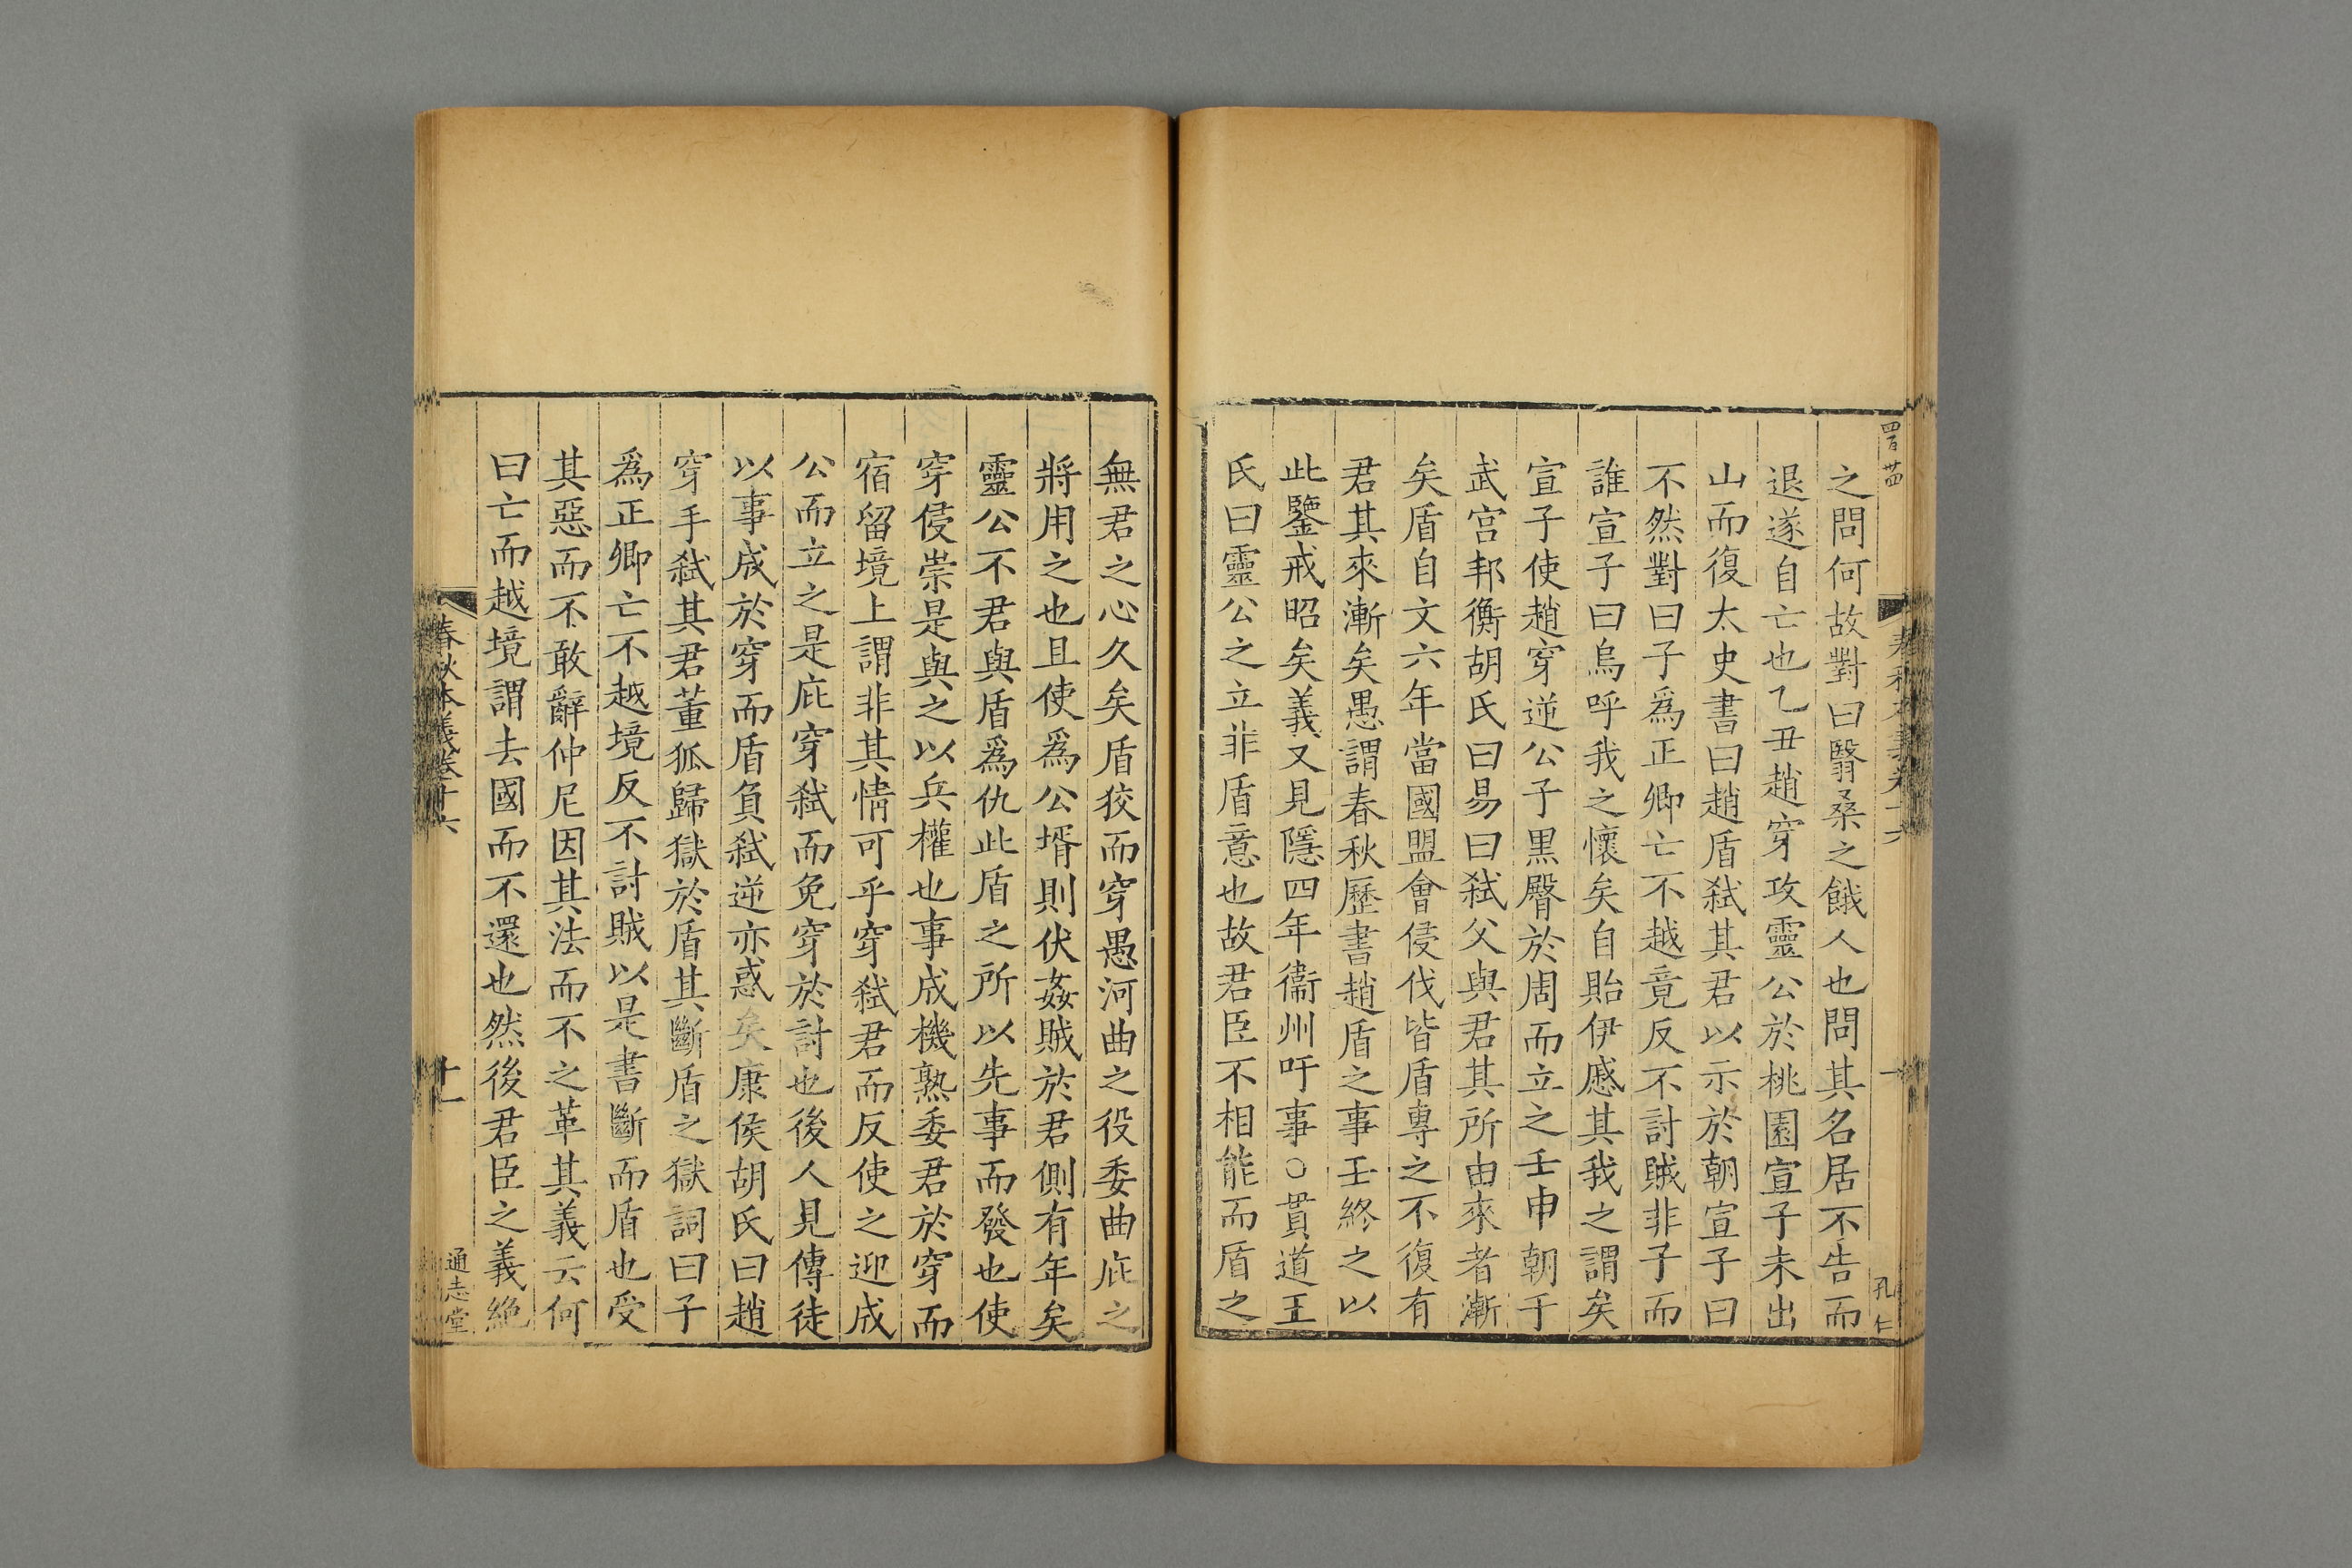 之問何故對曰翳桑之餓人也問其名居不告而
退遂自亡也乙丑趙穿攻靈公於桃園宣子未出
山而復太史書曰趙盾弒其君以示於朝宣子曰
不然對曰子爲正卿亡不越竟反不討賊非子而
誰宣子曰烏呼我之懷矣自貽伊慼其我之謂矣
宣子使趙穿逆公子黒臀於周而立之壬申朝于
武宫邦衡胡氏曰易曰弒父與君其所由來者漸
矣盾自文六年當國盟會侵伐皆盾專之不復有
君其來漸矣愚謂春秋歷書趙盾之事王終之以
此鑒戒昭矣義又見隱四年衞州吁事○貫道王
氏曰靈公之立非盾意也故君臣不相能而盾之
孔仁
無君之心久矣盾狡而穿愚河曲之役委曲庇之
將用之也且使爲公壻則伏姦賊於君側有年矣
靈公不君與盾爲仇此盾之所以先事而發也使
穿侵崇是與之以兵權也事成機熟委君於穿而
宿留境上謂非其情可乎穿弒君而反使之迎成
公而立之是庇穿弒而免穿於討也後人見傳徒
以事成於穿而盾負弒逆亦惑矣康侯胡氏曰趙
穿手弒其君董狐歸獄於盾其斷盾之獄詞曰子
爲正卿亡不越境反不討賊以是書斷而盾也受
其惡而不敢辭仲尼因其法而不之革其義云何
曰亡而越境謂去國而不還也然後君臣之義絶
春秋本義卷十六
十一
通志堂